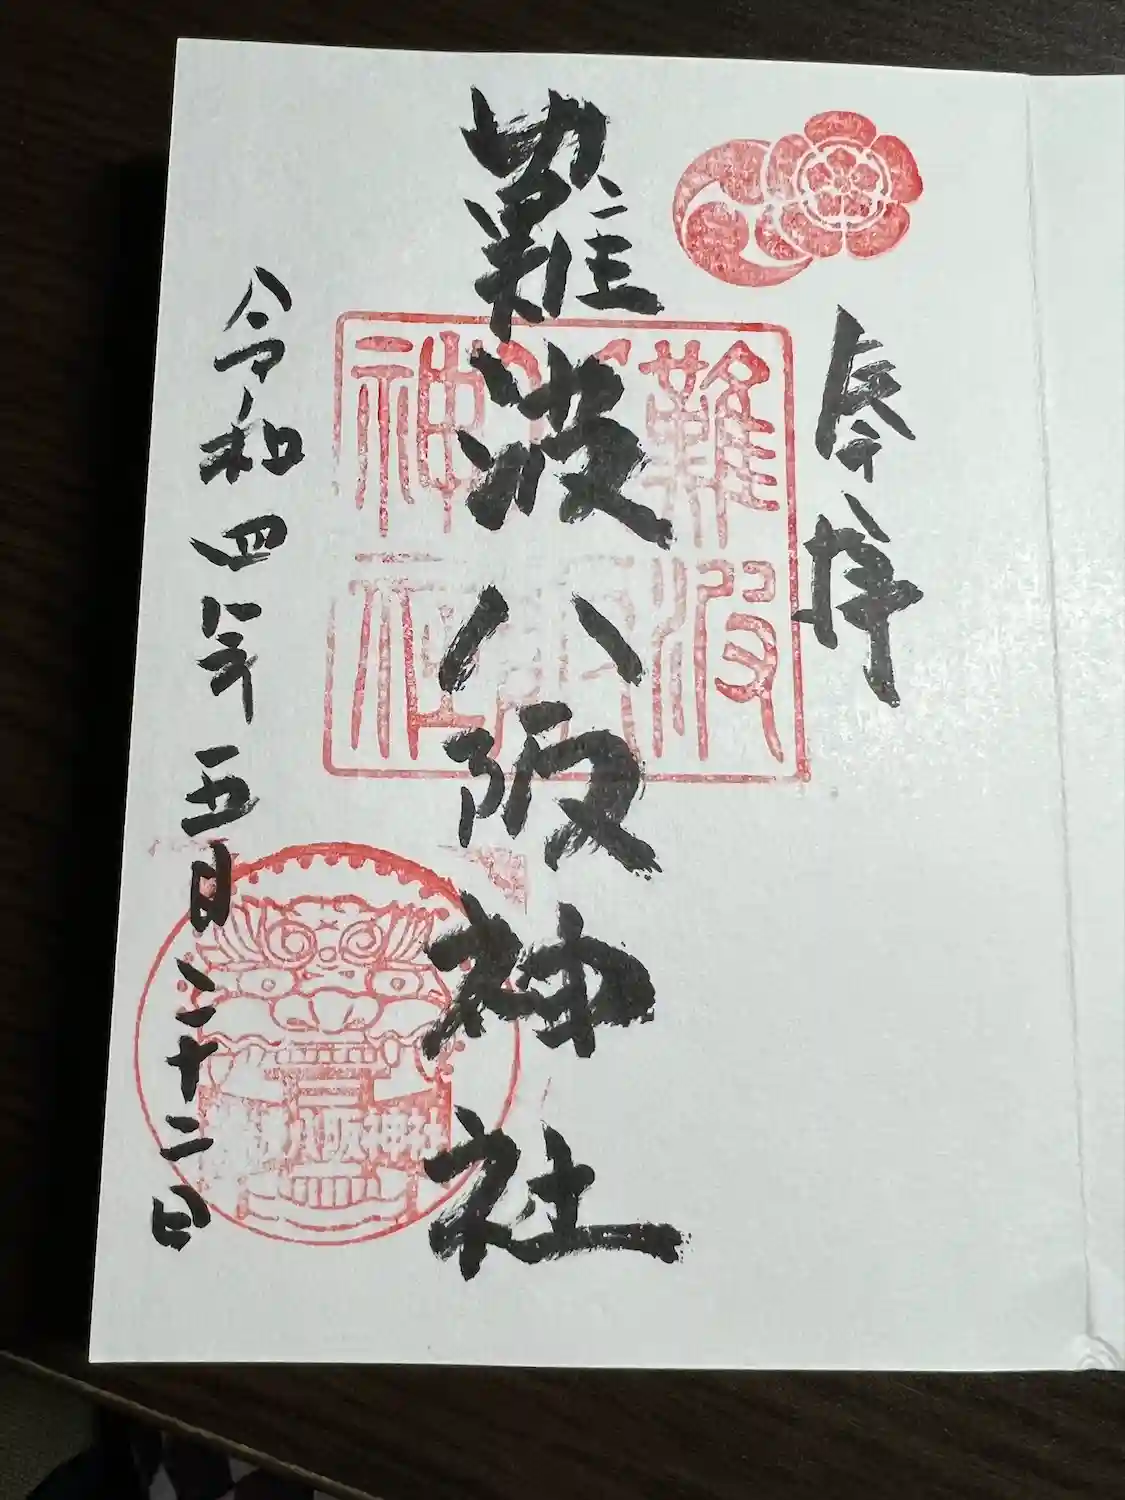 奉拝
難波八阪神社
令和四年五月二十二日
難波
神社
難波八阪神社